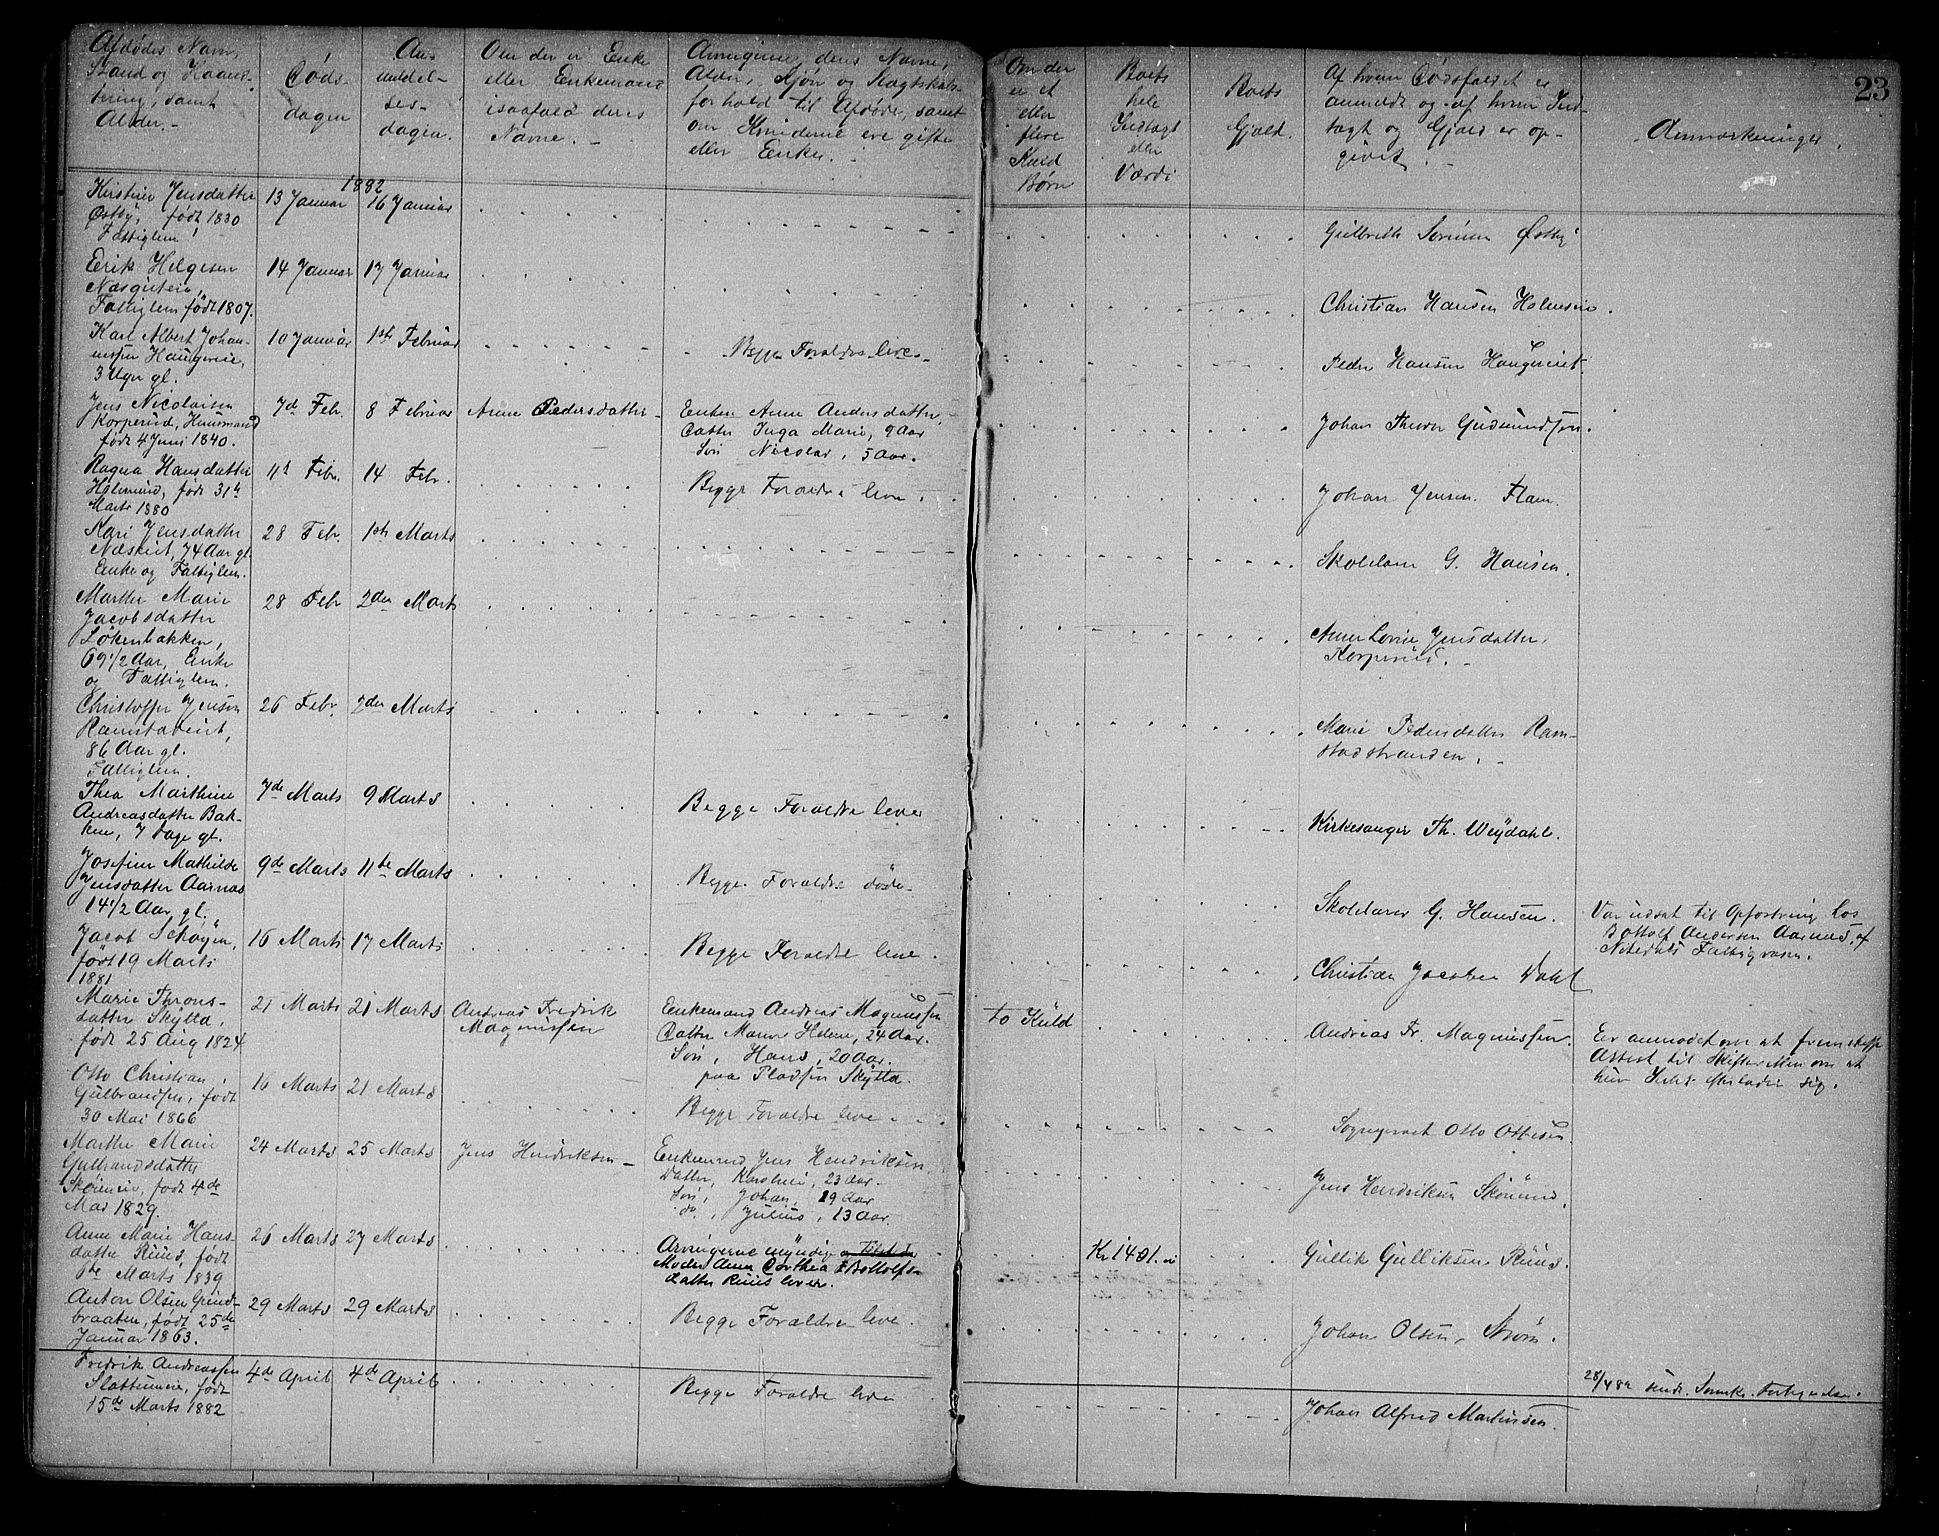 23
Afdødes Navn,
Stand og Haand-
tering, samt
Alder. -
Døds-
dagen
An-
meldel-
ses-
dagen.
Om der er Enke
eller Enkemand
isaafald deres
Navne. -
Arvingerne, deres Navne,
Alder, Kjøn og Slagtskabs-
forhold til Afdøde, samt
om Kvinderne ere gifte
eller Enker. -
Om der
er et
eller
flere
Kuld
Børn
Boets
hele
Indtægt
eller
Værdi
Boets
Gjæld.
Af hvem Dødsfaldet er
anmeldt og af hvem Ind-
tægt og Gjæld er op-
givet. -
Anmærkninger.
1882
Jensdatter
Østby, født 1830
Fattiglem
13 Januar 16 Januar
Sørensen Østby
Erik Helgesen
Fattiglem født 1807.
14 Januar 17 Januar
Christian Hansen
Karl Albert Johan-
nessen Haugereie,
3 Uger gl.
10 Januar 1ste Februar
Begge Forældre leve -
Peder Hansen Haugereiet.
Jens Nicolaisen
Korperud, Huusmand
født 4 Juni 1840.
7de Feb. 8 Februar
Anne Pedersdatter -
Enken Anne Andersdatter,
Datter Inga Marie, 9 Aar
Søn Nicolai, 5 Aar.
Johan Gudmundsen.
Ragna Hansdatter
født 31te
Marts 1880
11te Febr. 14 Febr.
Begge Forældre leve.
Johan Jensen Flam.
Kari Jensdatter
Næseiet, 74 Aar gl.
Enke og Fattiglem.
28 Feb. 1ste Marts
Skolelærer G. Hansen.
Marthe Marie
Jacobsdatter
Løkenbakken,
69 1/2 Aar, Enke
og Fattiglem.
28 Febr 2den Marts
Anne Lovise Jensdatter
Korperud. -
Christoffer Jensen
Ramstadeiet,
86 Aar gl.
Fattiglem.
26 Febr. 2den Marts
Marie Pedersdatter Ram-
stadstranden. -
Thea Marthine
Andreasdatter Bak-
ken, 7 Dage gl.
7de Marts 9 Marts
Begge Forældre lever
Kirkesanger Th. Weydahl.
Josefine Mathilde
Jensdatter Aarnæs
14 1/2 Aar gl.
9de Marts 11te Marts
Begge Forældre døde -
Skolelærer G. Hansen.
Var udsat til Opfostring hos
Bottolf Andersen Aarnæs, af
Nitedals Fattigvæsen.
Jacob Schøyen,
født 19 Marts
1881
16 Marts 17 Marts
Begge Forældre leve.
Christian Jacobsen Dahl
Marie Throns-
datter Skytta,
født 25 Aug 1824.
21 Marts 21 Marts
Andreas Fredrik
Magnussen
Enkemand Andreas Magnussen
Datter Maren Helene, 24 Aar.
Søn, Hans, 20 Aar.
paa Pladsen Skytta.
to Kuld
Andreas Fr. Magnussen.
Er anmodet om at fremskaffe
Attest til Skifteretten om at
hun Intet efterlader sig.
Otto Christian
Gulbrandsen, født
30 Mai 1866
16 Marts 21 Marts
Begge Forældre leve.
Otto Ottesen
Marthe Marie
Gulbrandsdatter
født 4de
Mai 1829.
24 Marts 25 Marts
Jens Hendriksen -
Enkemand Jens Hendriksen.
Datter, Karoline, 23 Aar.
Søn, Johan, 19 Aar
do., Julius, 13 Aar.
Jens Hendriksen
Anne Marie Hans-
datter Ruus, født
6te Marts 1839
26 Marts 27 Marts
Arvingerne myndige
Moder Anne Dorthea Bottolfs-
datter Ruus lever.
Kr 1401.
Gullik Gulliksen Ruus.
Anton Olsen Grind-
braaten, født 25de
Januar 1863.
29 Marts 29 Marts
Begge Forældre leve.
Johan Olsen, Strøm.
Fredrik Andreassen
født
15de Marts 1882
4de April 4de April
Begge Forældre leve
Johan Alfred Martinsen.
28/4 82